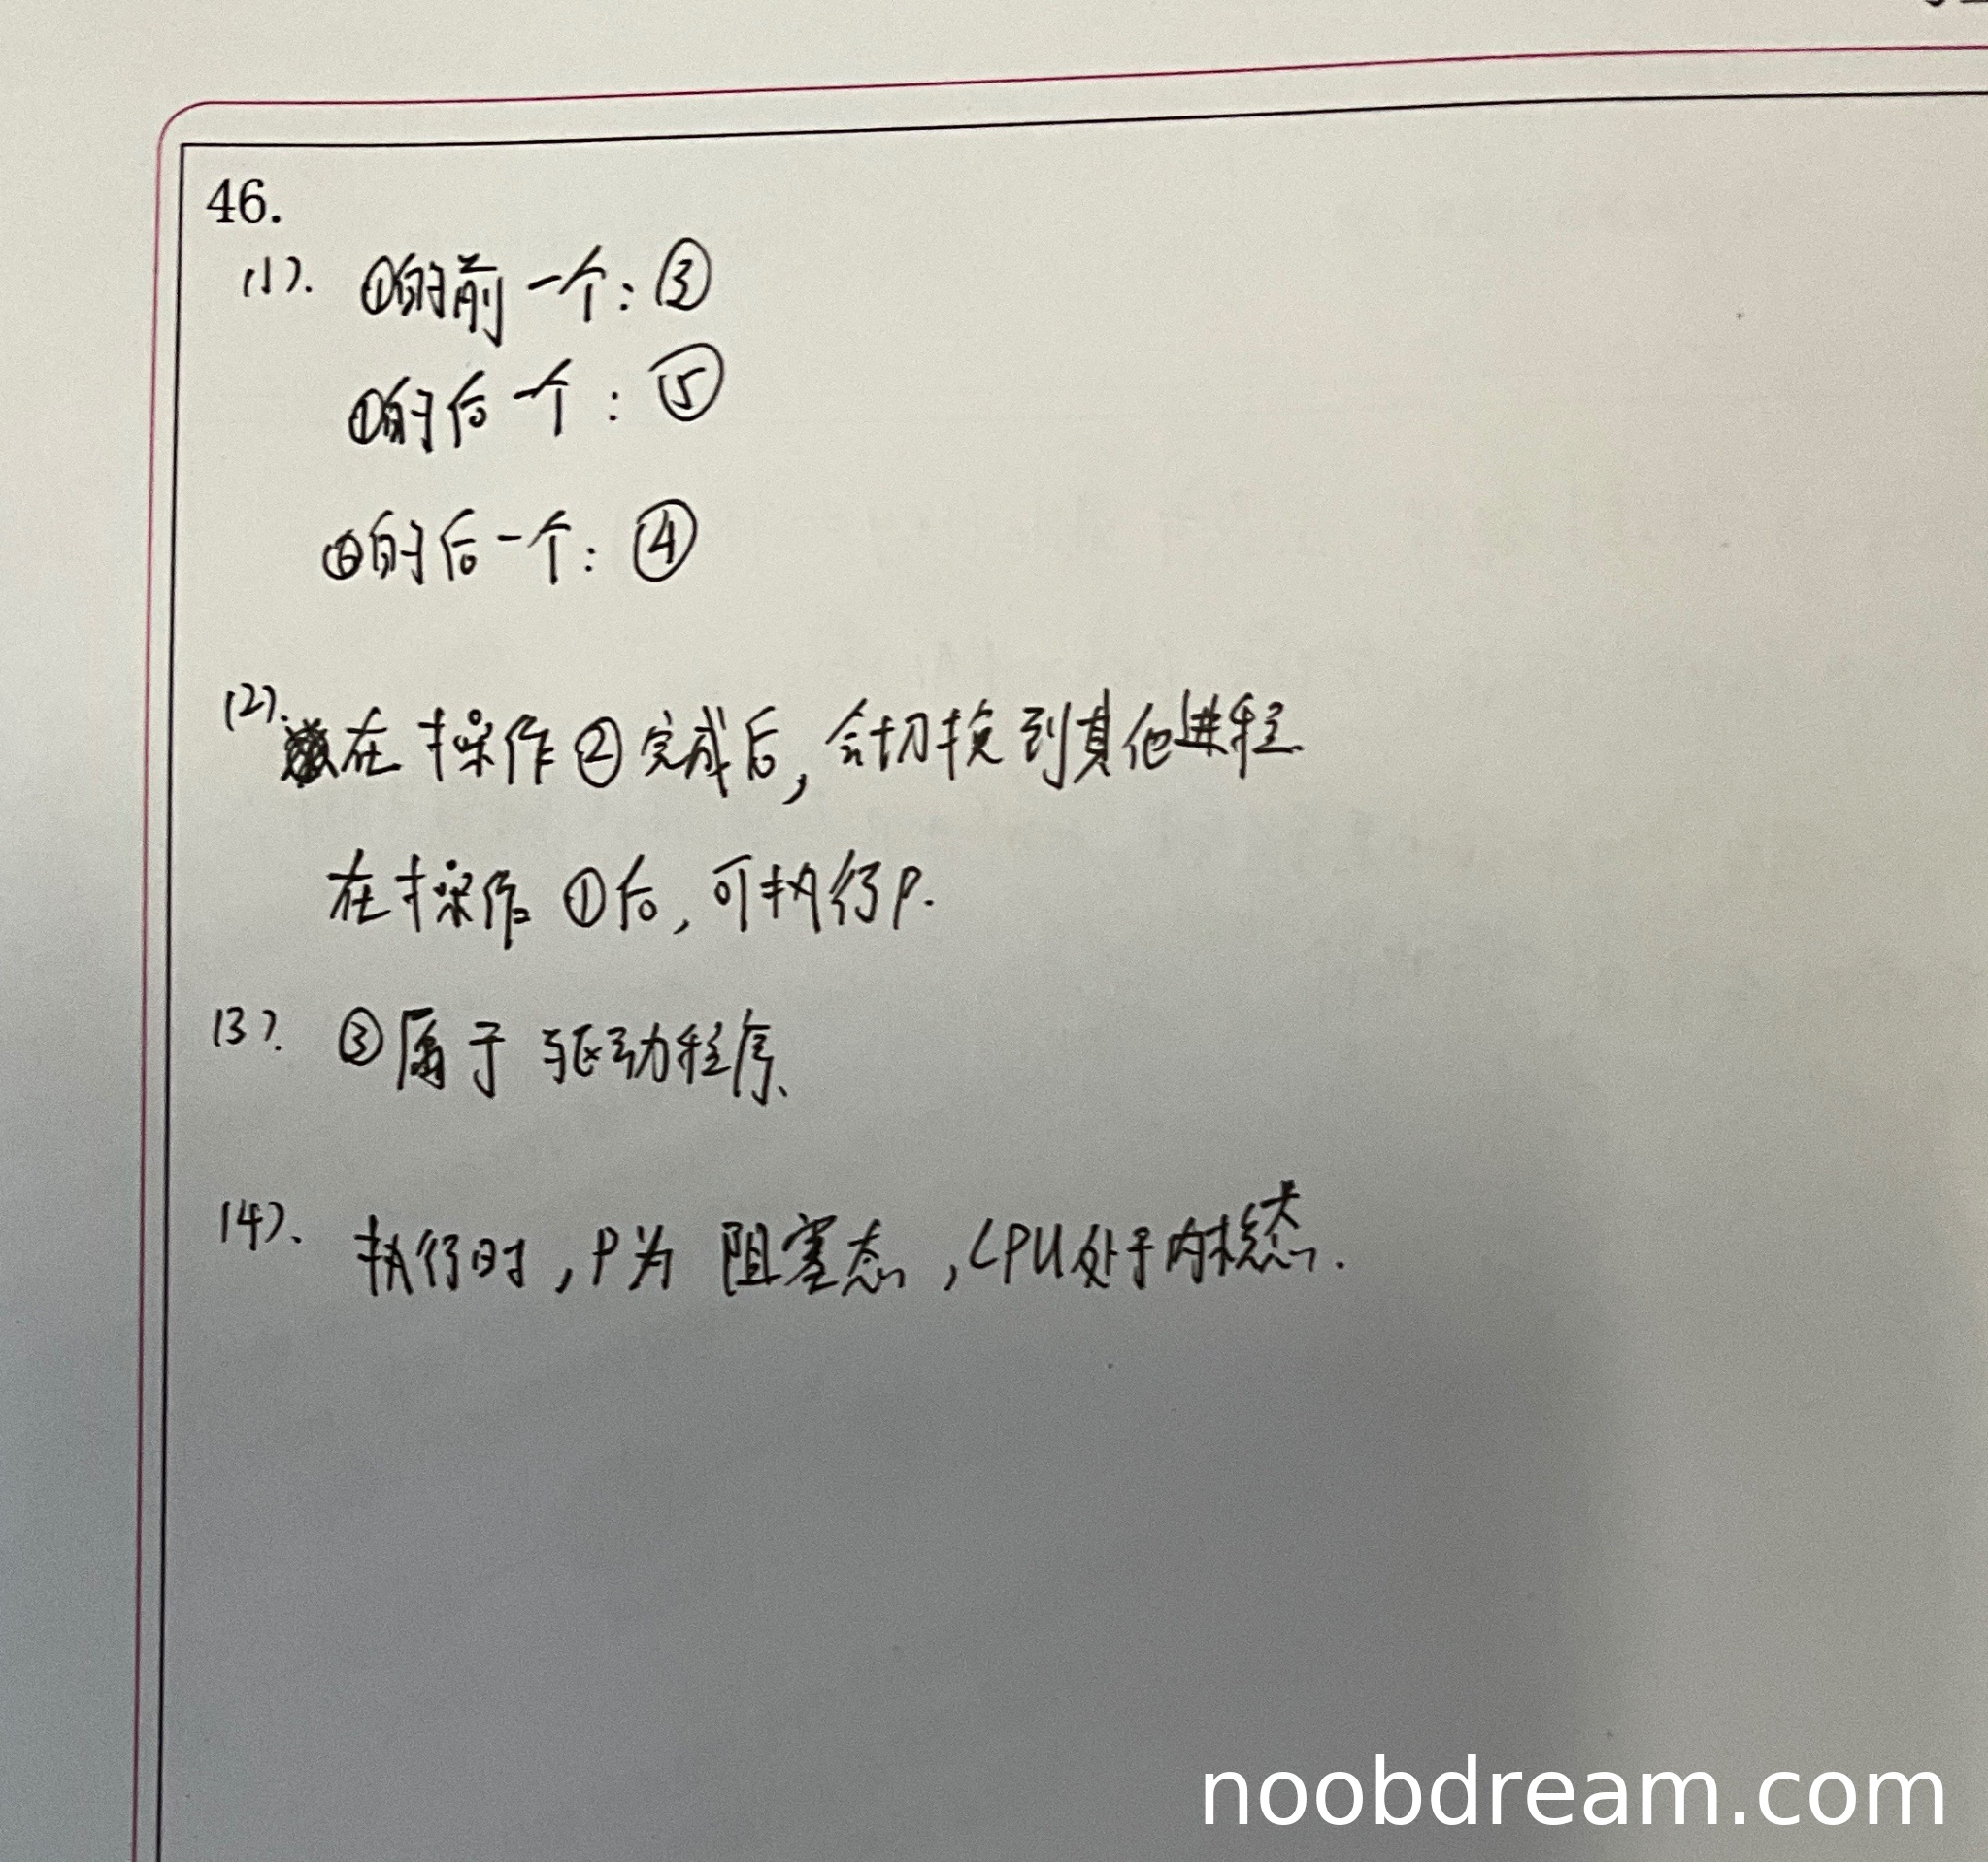 46.
(1). ①的前一个:③
①的后一个:⑤
⑥的后一个:④
(2). 在操作②完成后,会切换到其他进程.
在操作①后,可执行P.
(3). ③属于驱动程序、
(4)、执行时,P为 阻塞态,CPU处于内核态.
noobdream.com